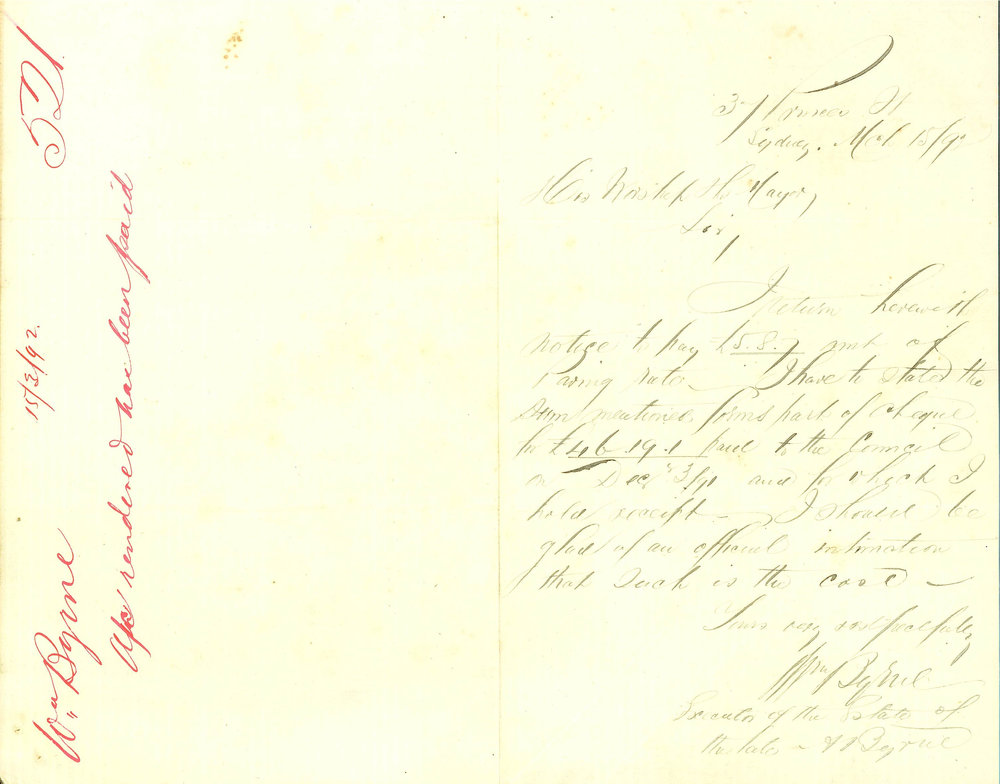 521
15/3/92.
Wm Byrne
A/c rendered has been paid
Sydney. Mch 15/92
His Worship the Mayor,
Sir,
I return herewith
notice to pay £5.8.7 amt of
Paving rate – I have to state the
Sum mentioned forms part of cheque
for £46.19.1 paid to the Council
on Decr 3/91 and for which I
hold receipt – I should be
glad of an official intimation
that such is the case –
Yours very respectfully
Wm Byrne
Executor of the Estate of
the late Byrne